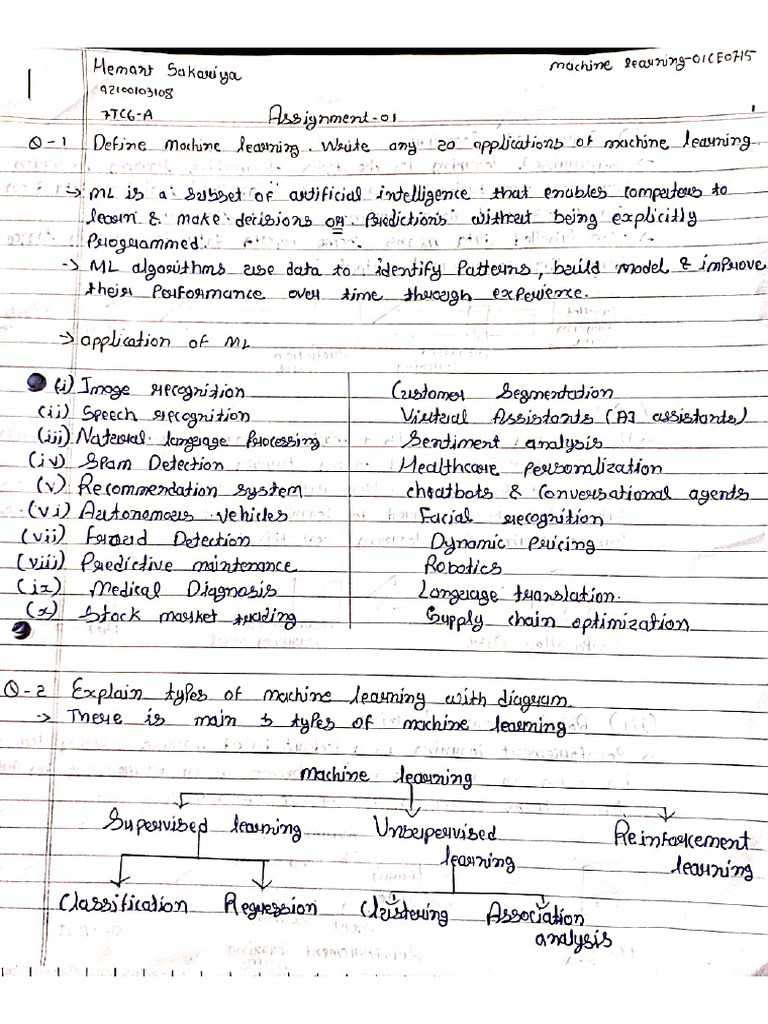 Hemant Sakariya
machine learning-01CE0715
92100103108
7TC6-A
Assignment-01
1
Q-1 Define Machine learning. Write any 20 applications of machine learning.
→ ML is a subset of artificial intelligence that enables computers to
learn & make decisions OR Predictions without being explicitly
Programmed.
→ ML algorithms use data to identify Patterns, build model & improve
their Performance over time through experience.
→ application of ML
(i) Image recognition Customer Segmentation
(ii) Speech recognition Virtual Assistants (AI assistants)
(iii) Natural language Processing Sentiment analysis
(iv) Spam Detection Healthcare personalization
(v) Recommendation system chatbots & Conversational agents
(vi) Autonomous vehicles Facial recognition
(vii) Fraud Detection Dynamic Pricing
(viii) Predictive maintenance Robotics
(ix) Medical Diagnosis Language translation.
(x) Stock market trading Supply chain optimization
Q-2 Explain types of machine learning with diagram.
→ There is main 3 types of machine learning
Machine learning
Supervised learning Unsupervised Reinforcement
learning learning
Classification Regression Clustering Association
analysis